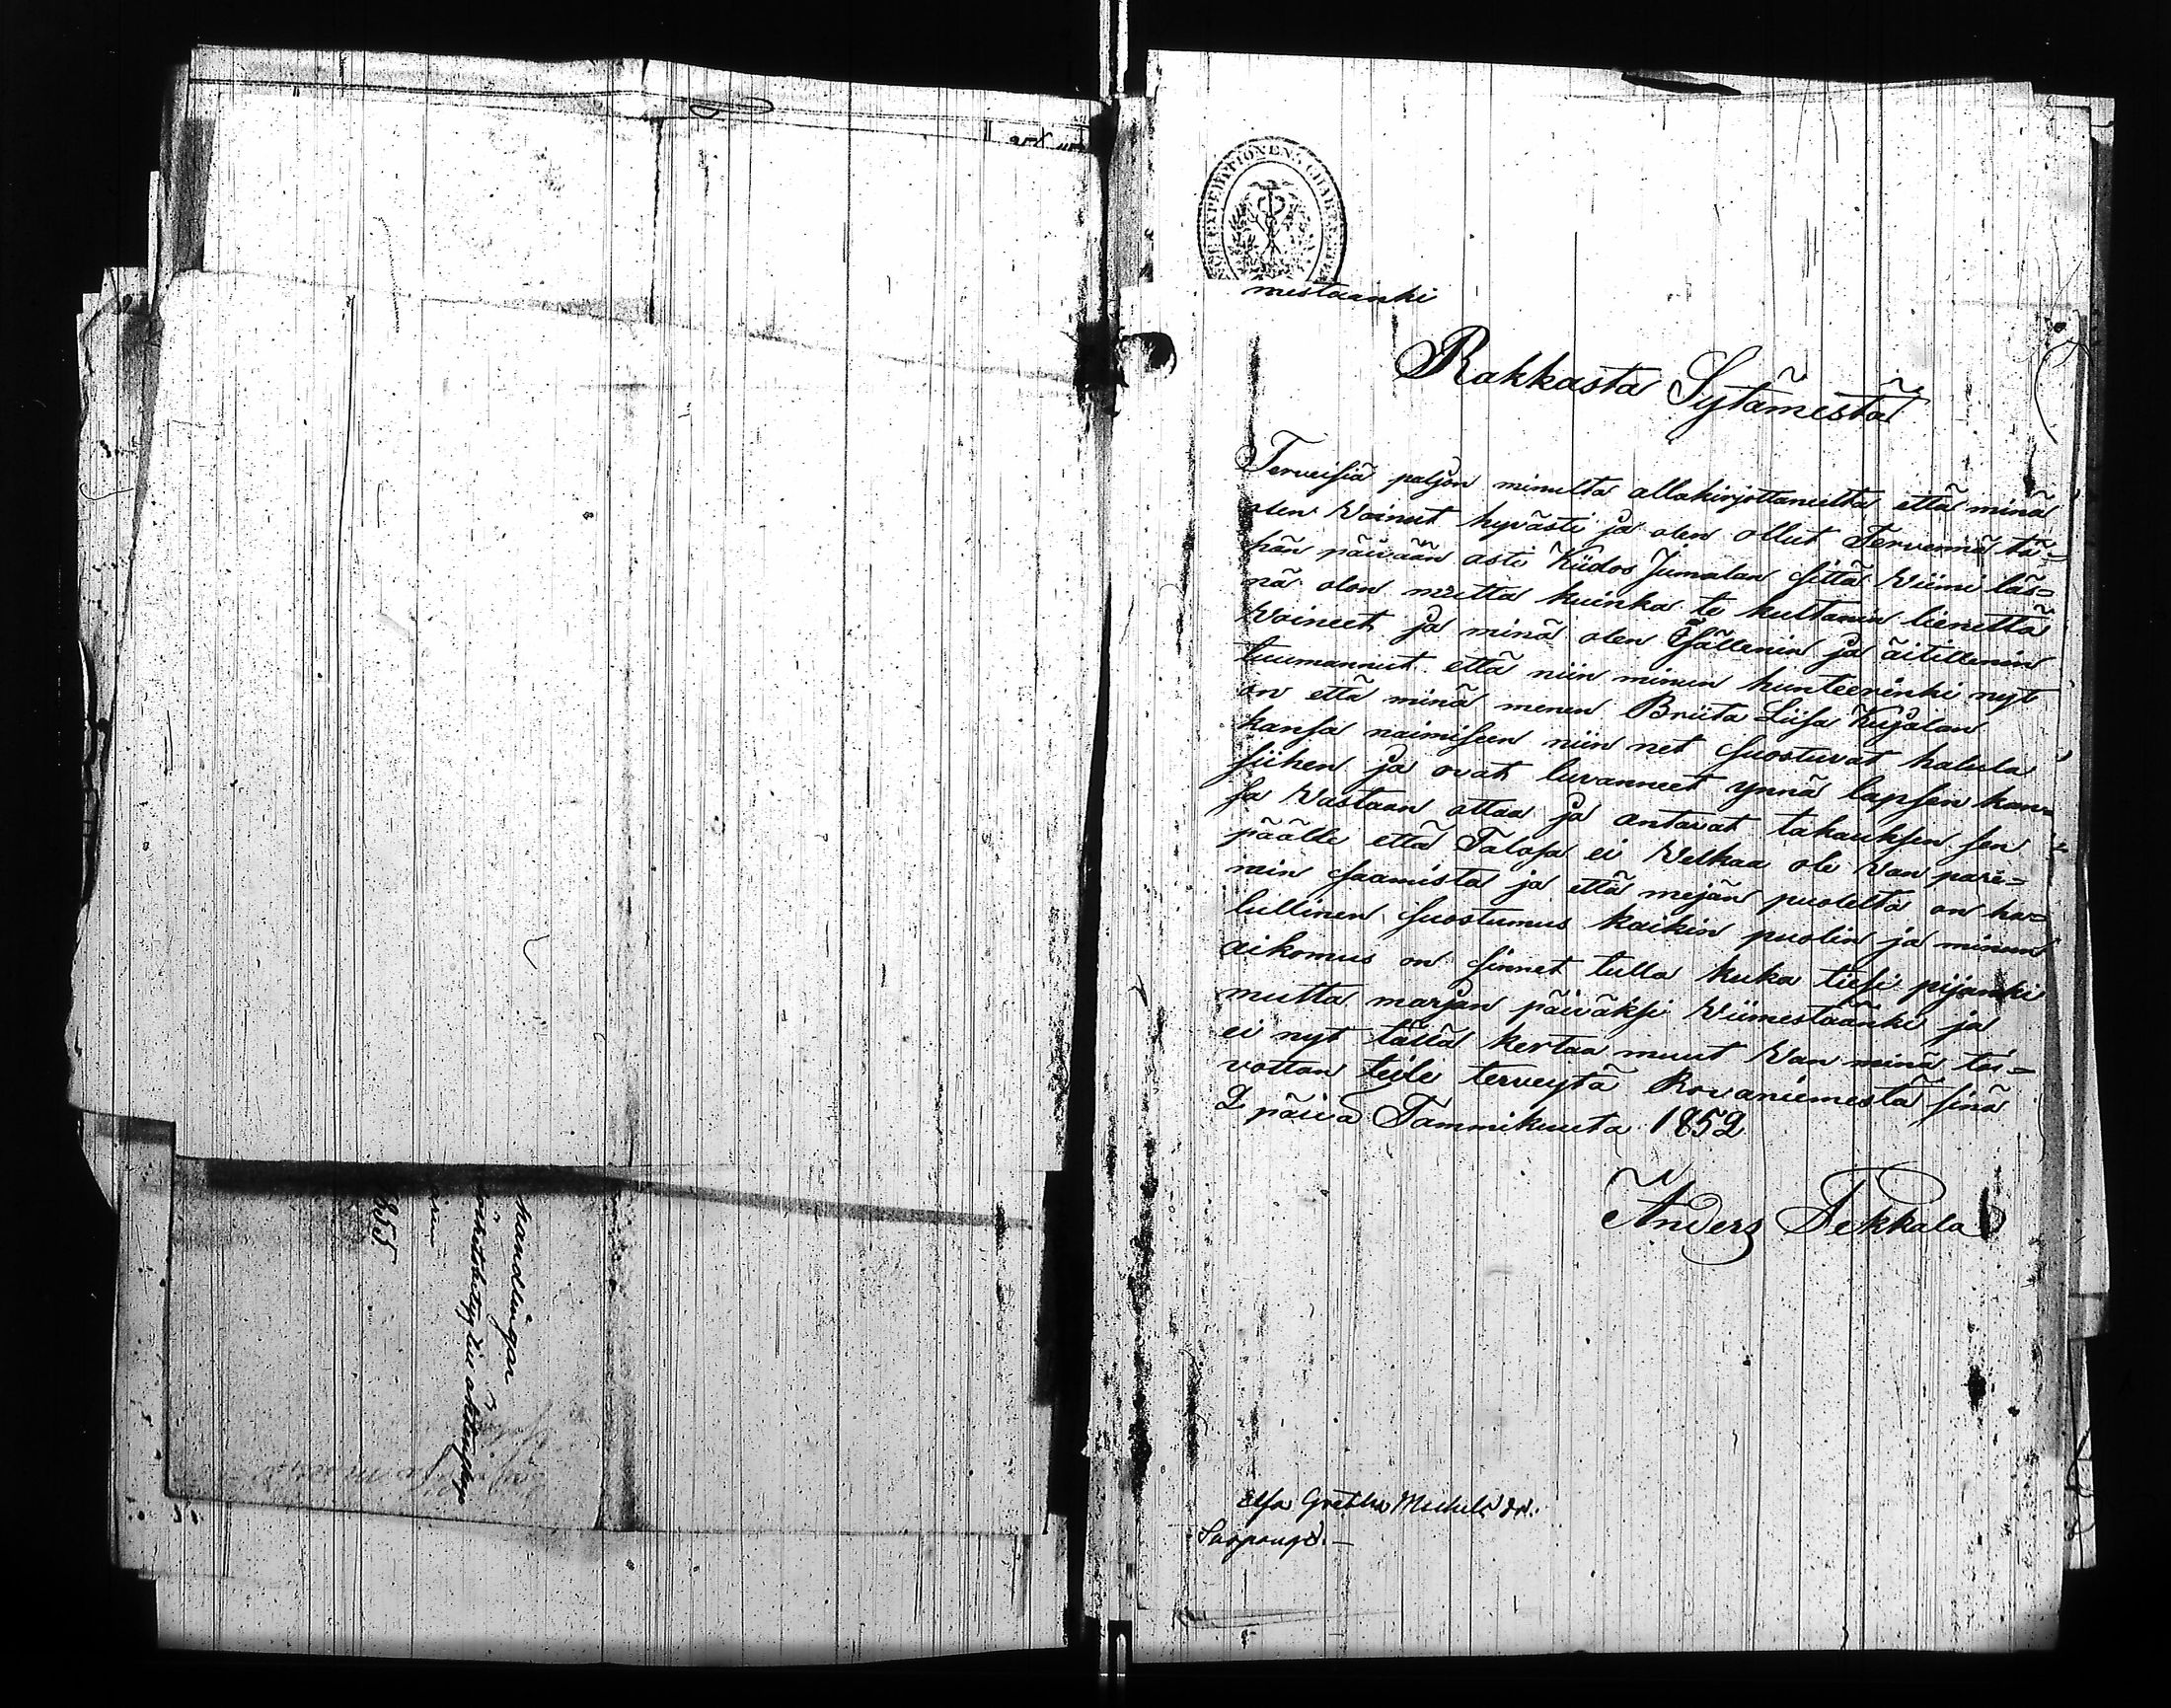 handlingar
1855
EXPEDITIONENS CHARTÆ
mestaanki
Rakkasta Sytämestä
Terveisiä paljon minulta allakirjottaneelta että minä
olen Voinut hyvästi ja olen ollut Tervennä tä=
hän päivään asti Kiidos Jumalan sittä Viimi läs=
nä olon mutta kuinka te kultanin lienettä
Voineet ja minä olen Isällenin ja äitillenin
tuumannut että niin minun hunteerinki nyt
on että minä menen Briita Liisa Kujalan
kansa naimiseen niin net suostuvat halula
siihen ja ovat luvanneet ynnä lapsen kan=
sa Vastaan ottaa ja antavat takauksen sen
päälle että Talosa ei Velkaa ole Van pare=
min saamista ja että mejän puolelta on ha=
lullinen suostumus kaikin puolin ja minun
aikomus on sinnet tulla kuka tiesi pijanki
mutta marjan päiväksi Viimestäänki ja
ei nyt tällä kertaa muut Van minä toi=
vottan teile terveytä Rovaniemestä sinä
2 päivä Tammikuuta 1852
Anders Tekkala
Elsa Gretha Michels dr.